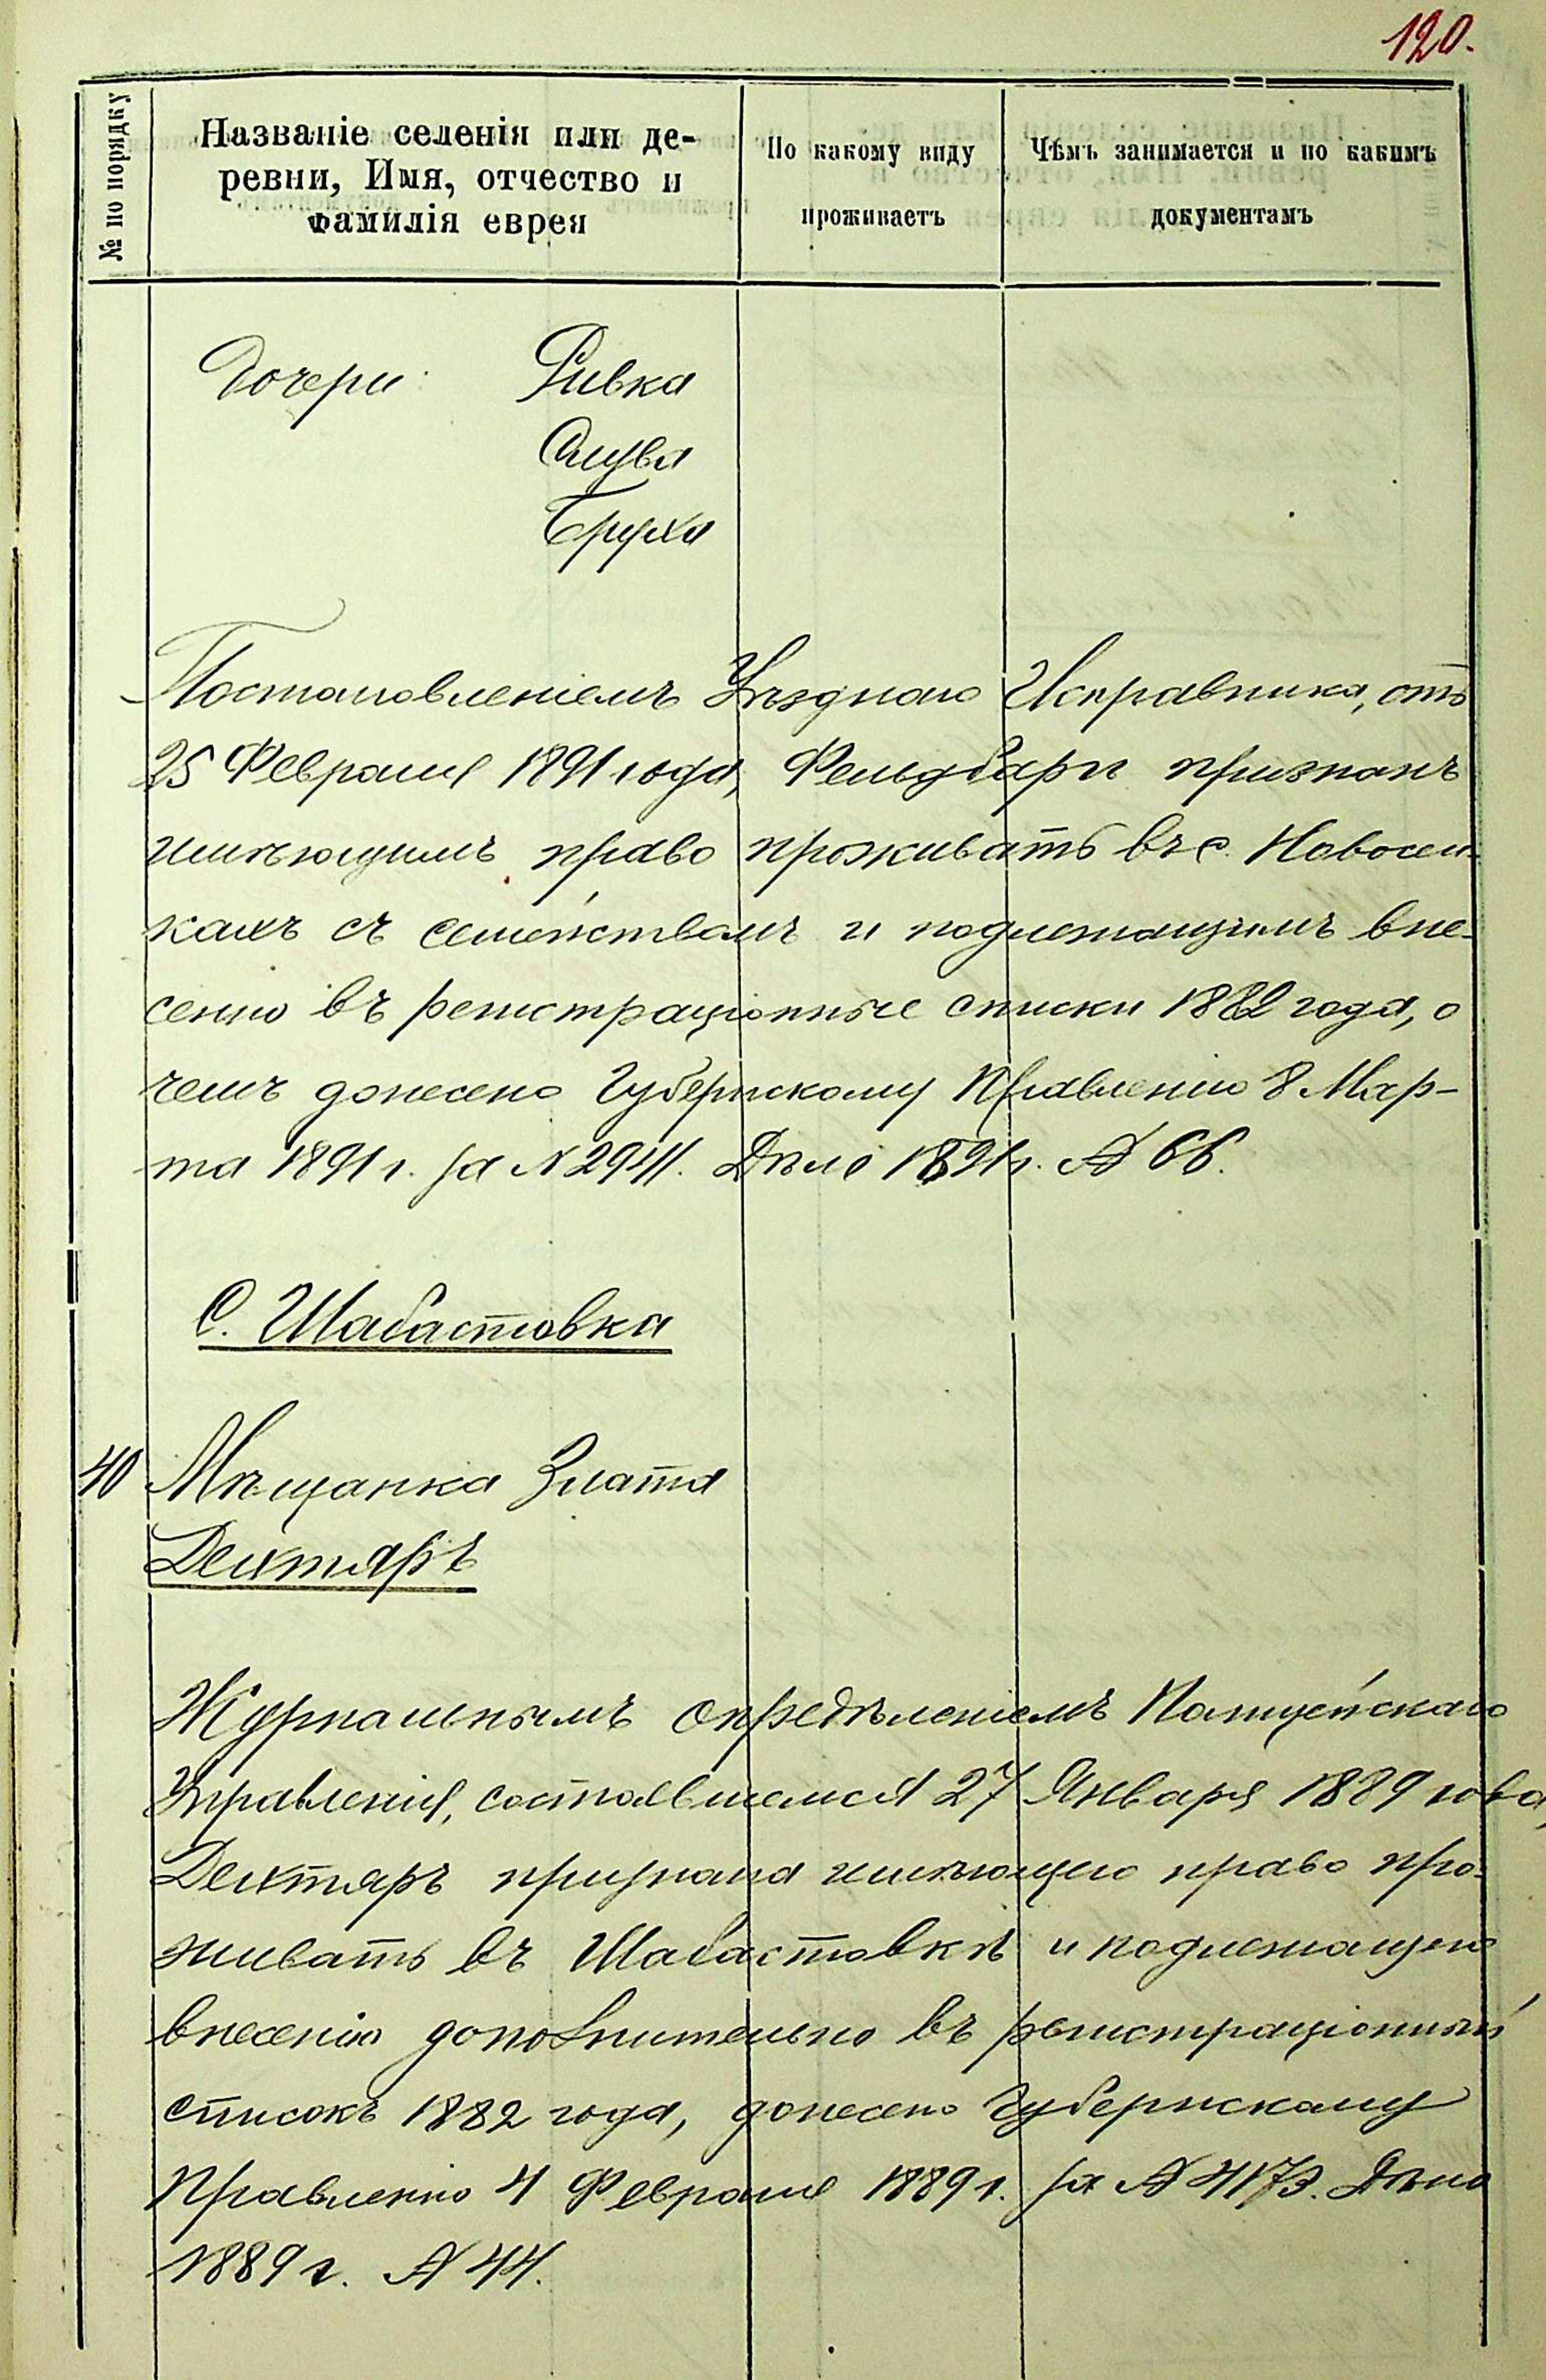 120.
№ по порядку
Названіе селенія или де-
ревни, Имя, отчество и
фамилія еврея
По какому виду
проживаетъ
Чѣмъ занимается и по какимъ
документамъ
Дочери: Ривка
Слува
Бруха
Постановленіемъ Уѣзднаго Исправника, отъ
25 Февраля 1891 года, Фельдбаръ признанъ
имѣющимъ право проживать въ с. Новосел-
кахъ съ семействомъ и подлежащимъ вне-
сенію въ регистраціонные списки 1882 года, о
чемъ донесено Губернскому Правленію 8 Мар-
та 1891 г. за № 2941. Дѣло 1891 г. № 66.
С. Шабастовка
40 Мѣщанка Злата
Дехтяръ
Журнальнымъ опредѣленіемъ Полицейскаго
Управленія, состоявшемся 27 Января 1889 года,
Дехтяръ признана имѣющею право про-
живать въ Шабастовкѣ и подлежащею
внесенію дополнительно въ регистраціонный
списокъ 1882 года, донесено Губернскому
Правленію 4 Февраля 1889 г. за № 4173. Дѣло
1889 г. № 44.